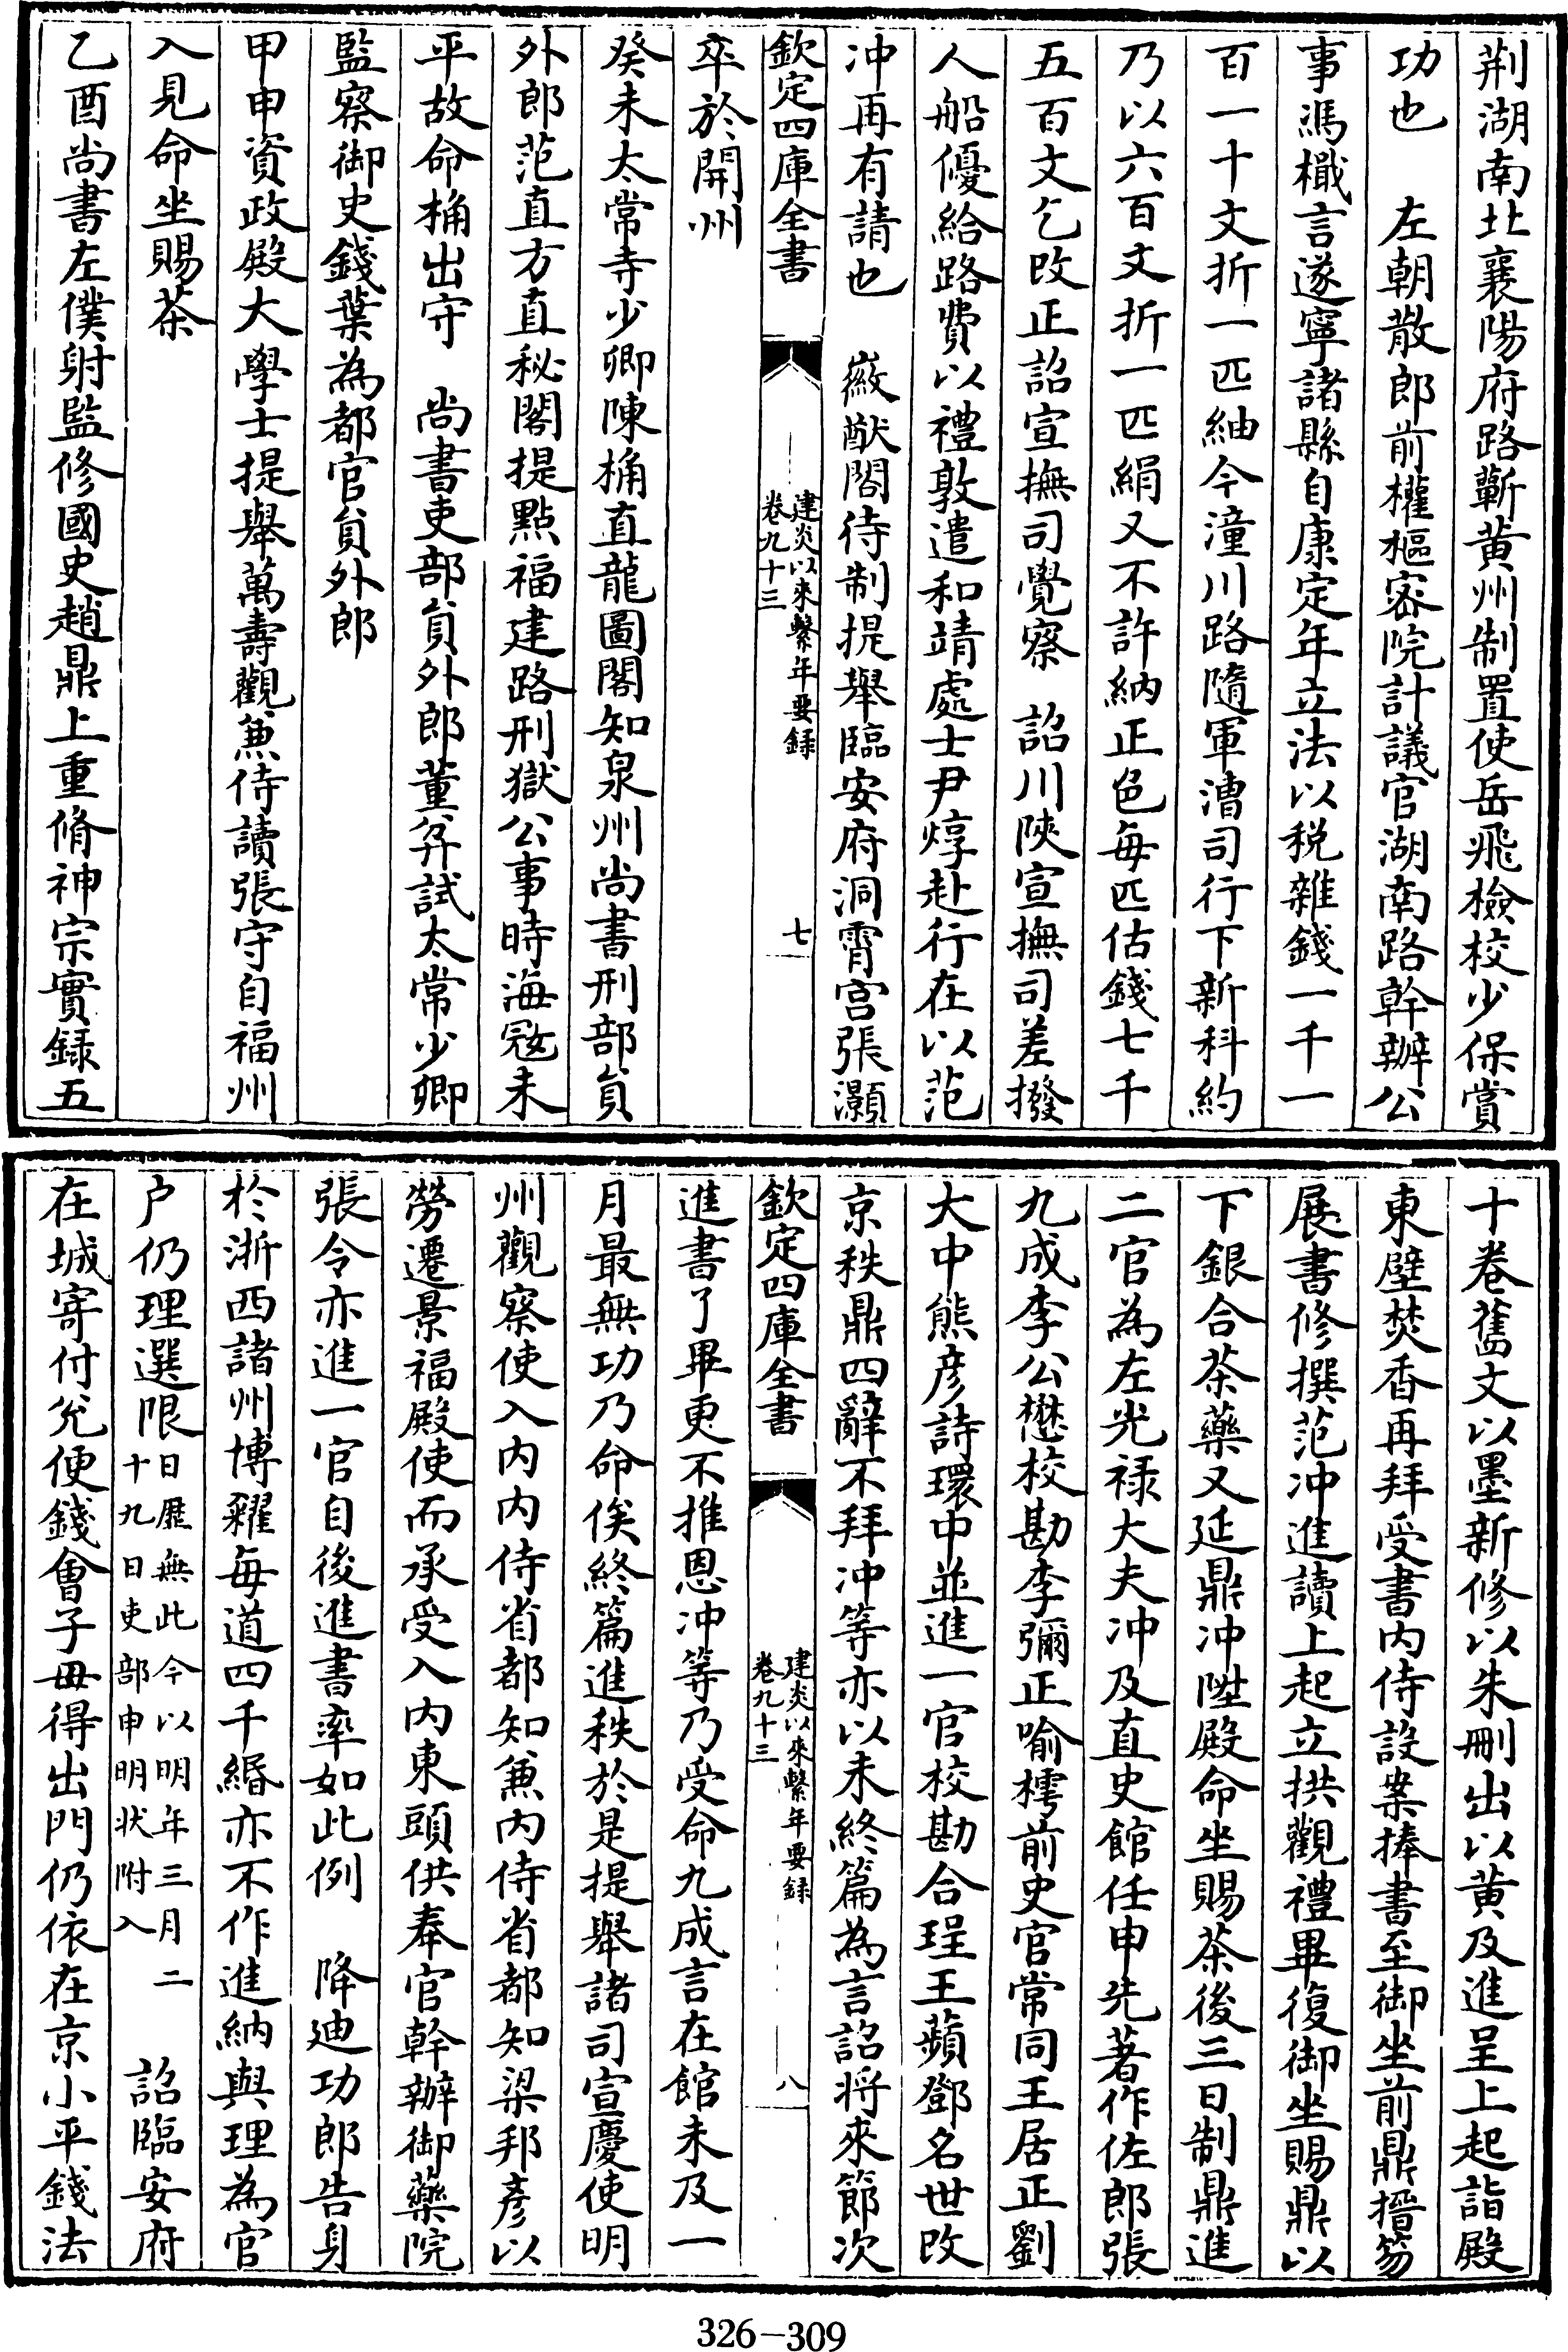 荆湖南北襄陽府路蘄黄州制置使岳飛檢校少保賞
功也　左朝散郎前權樞密院計議官湖南路幹辦公
事馮檝言遂寧諸縣自康定年立法以税雜錢一千一
百一十文折一匹紬今潼川路隨軍漕司行下新科約
乃以六百文折一匹絹又不許納正色每匹估錢七千
五百文乞改正詔宣撫司覺察　詔川陝宣撫司差撥
人船優給路費以禮敦遣和靖處士尹焞赴行在以范
冲再有請也　徽猷閣待制提舉臨安府洞霄宫張灝
卒於開州
欽定四庫全書　建炎以來繫年要録　卷九十三　七
癸未太常寺少卿陳桷直龍圖閣知泉州尚書刑部員
外郎范直方直秘閣提點福建路刑獄公事時海寇未
平故命桷出守　尚書吏部員外郎董弅試太常少卿
監察御史錢葉為都官員外郎
甲申資政殿大學士提舉萬壽觀兼侍讀張守自福州
入見命坐賜茶
乙酉尚書左僕射監修國史趙鼎上重脩神宗實録五
十卷舊文以墨新修以朱刪出以黄及進呈上起詣殿
東壁焚香再拜受書内侍設案捧書至御坐前鼎搢笏
展書修撰范冲進讀上起立拱觀禮畢復御坐賜鼎以
下銀合茶藥又延鼎冲陞殿命坐賜茶後三日制鼎進
二官為左光禄大夫冲及直史館任申先著作佐郎張
九成李公懋校勘李彌正喻樗前史官常同王居正劉
大中熊彦詩環中並進一官校勘合珵王蘋鄧名世改
京秩鼎四辭不拜冲等亦以未終篇為言詔將來節次
欽定四庫全書　建炎以來繫年要録　卷九十三　八
進書了畢更不推恩冲等乃受命九成言在館未及一
月最無功乃命俟終篇進秩於是提舉諸司宣慶使明
州觀察使入内内侍省都知兼内侍省都知梁邦彦以
勞遷景福殿使而承受入内東頭供奉官幹辦御藥院
張令亦進一官自後進書率如此例　降廸功郎告身
於浙西諸州博糴每道四千緡亦不作進納與理為官
户仍理選限日厯無此今以明年三月二十九日吏部申明状附入　詔臨安府
在城寄付兊便錢會子毋得出門仍依在京小平錢法
326－309